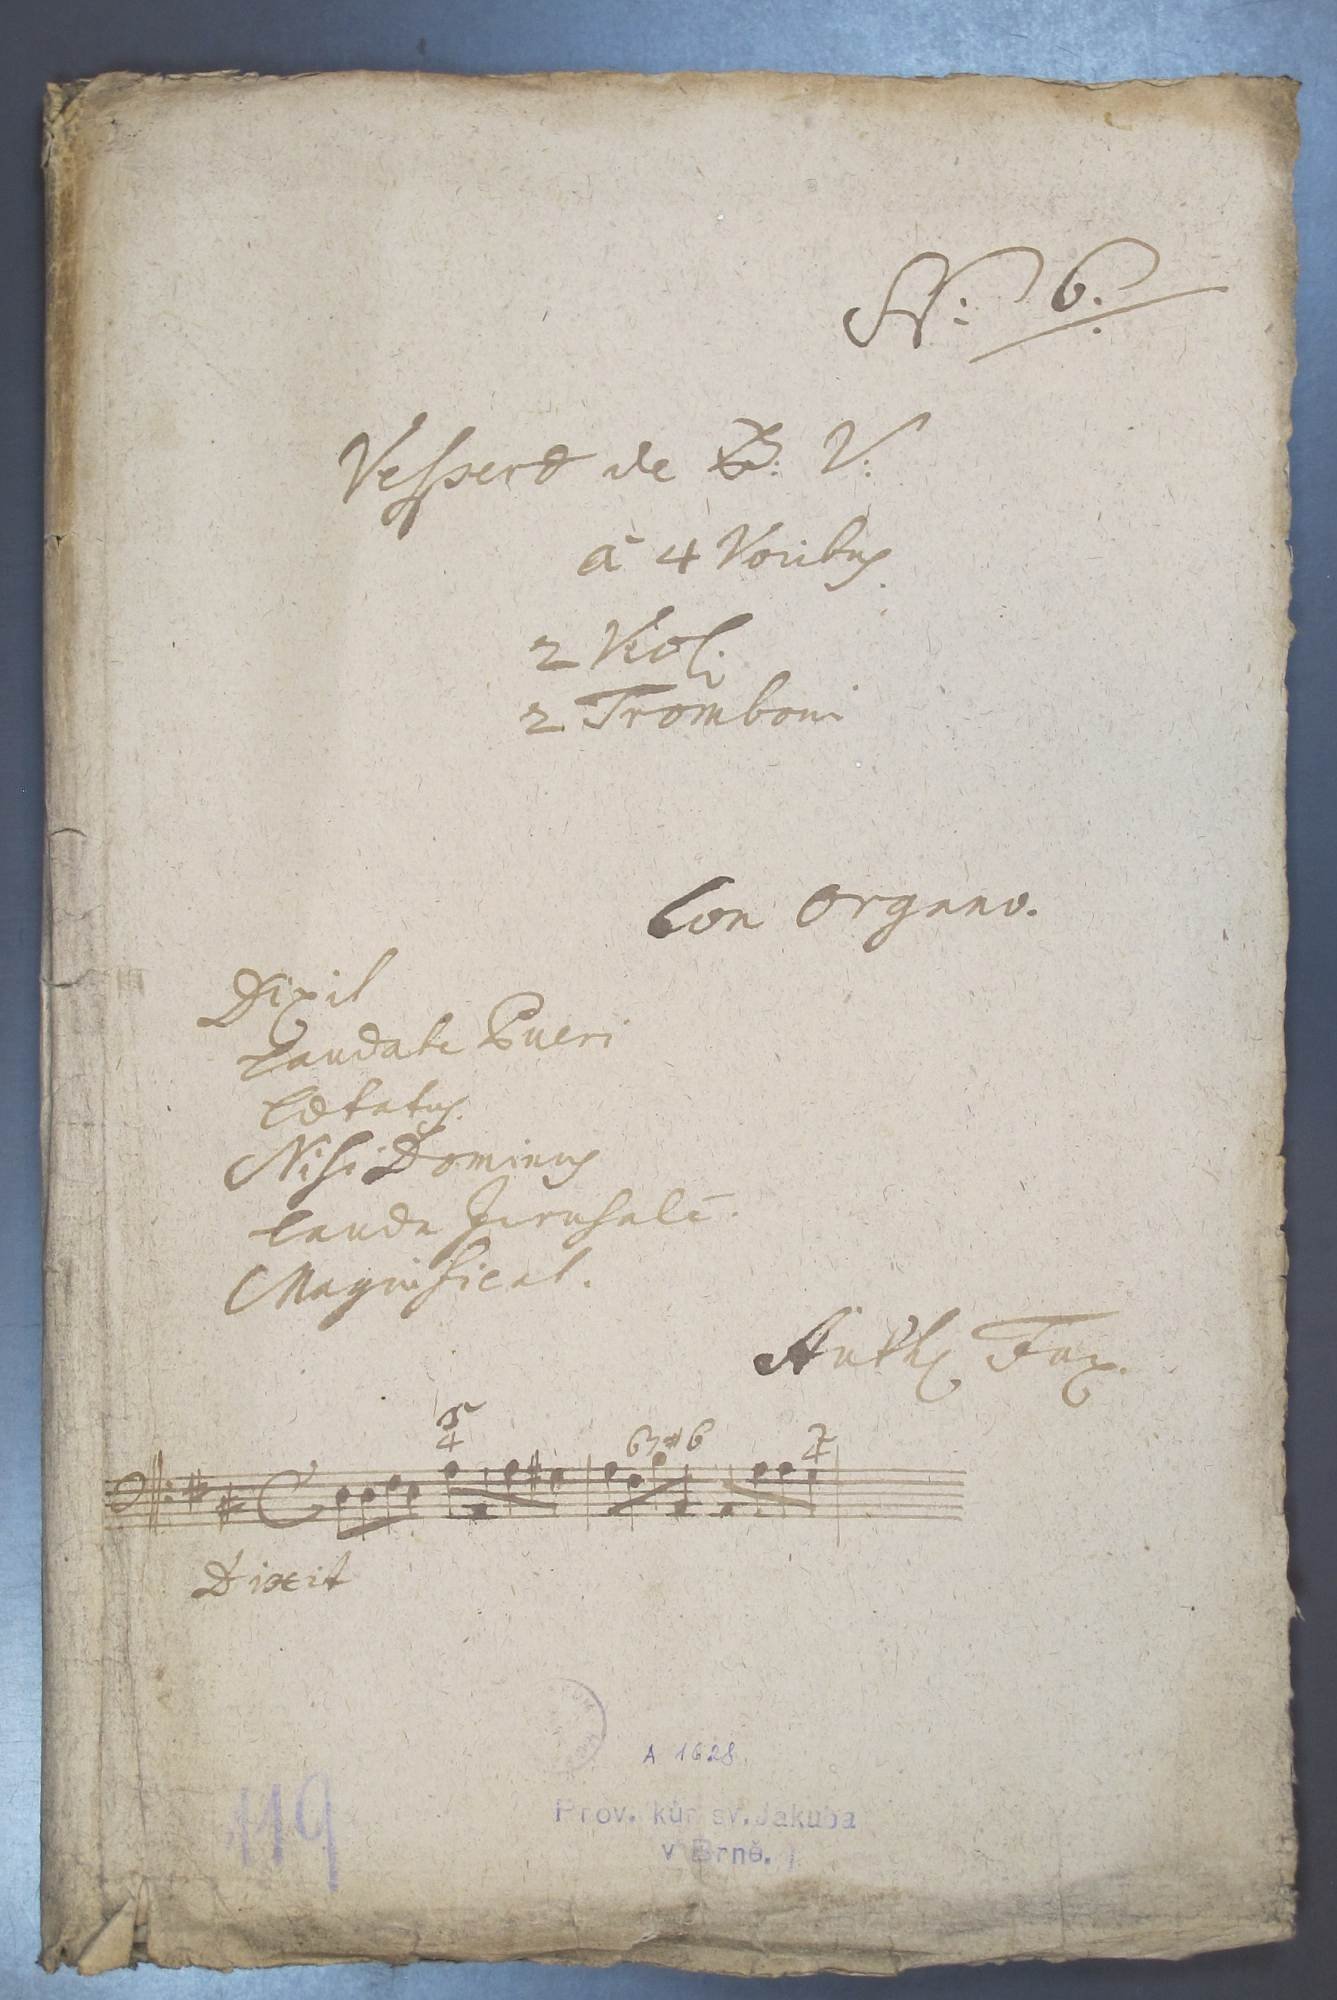 N: 6.
Vesperæ de B: V:
à 4 Vocibus
2 Viol:
2 Tromboni
Con Organo.
Dixit
Laudate Pueri
Lætatus
Nisi Dominus
Lauda Jerusalē.
Magnificat.
Auth Fux.
5 4 6 5 # 6 7 4
Dixit
A 1628
119
Prov. kůr sv. Jakuba
v Brně.